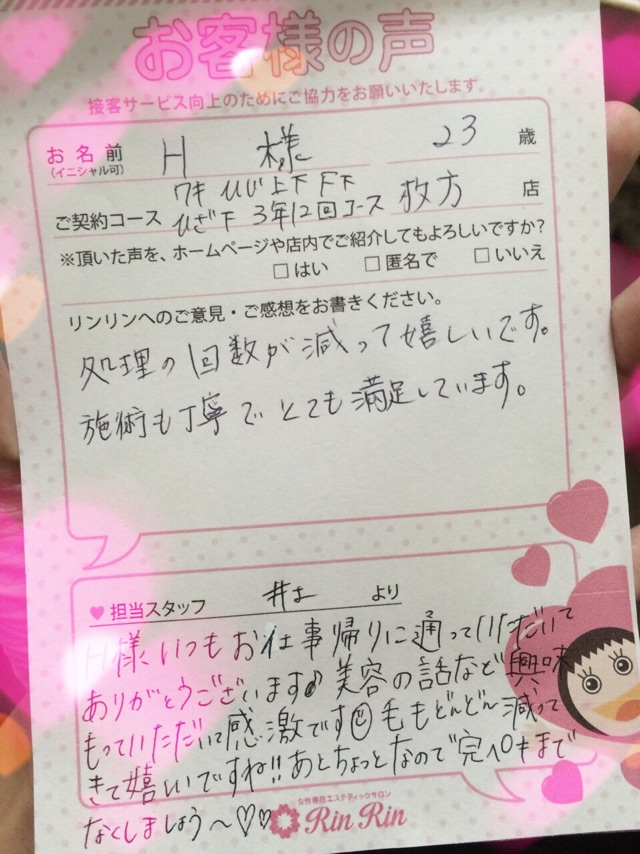 お客様の声
接客サービス向上のためにご協力をお願いいたします。
お名前 H 様 23 歳
(イニシャル可)
ワキ ひじ上下 F下
ご契約コース ひざ下 3年12回コース 枚方 店
※頂いた声を、ホームページや店内でご紹介してもよろしいですか?
□はい □匿名で □いいえ
リンリンへのご意見・ご感想をお書きください。
処理の回数が減って嬉しいです。
施術も丁寧でとても満足しています。
♥担当スタッフ 井上 より
H様、いつもお仕事帰りに通っていただいて
ありがとうございます♪ 美容の話など興味
もっていただいて感激です☺毛もどんどん減って
きて嬉しいですね!!あとちょっとなので完ペキまで
なくしましょう〜♡♡
女性専門エステティックサロン
Rin Rin